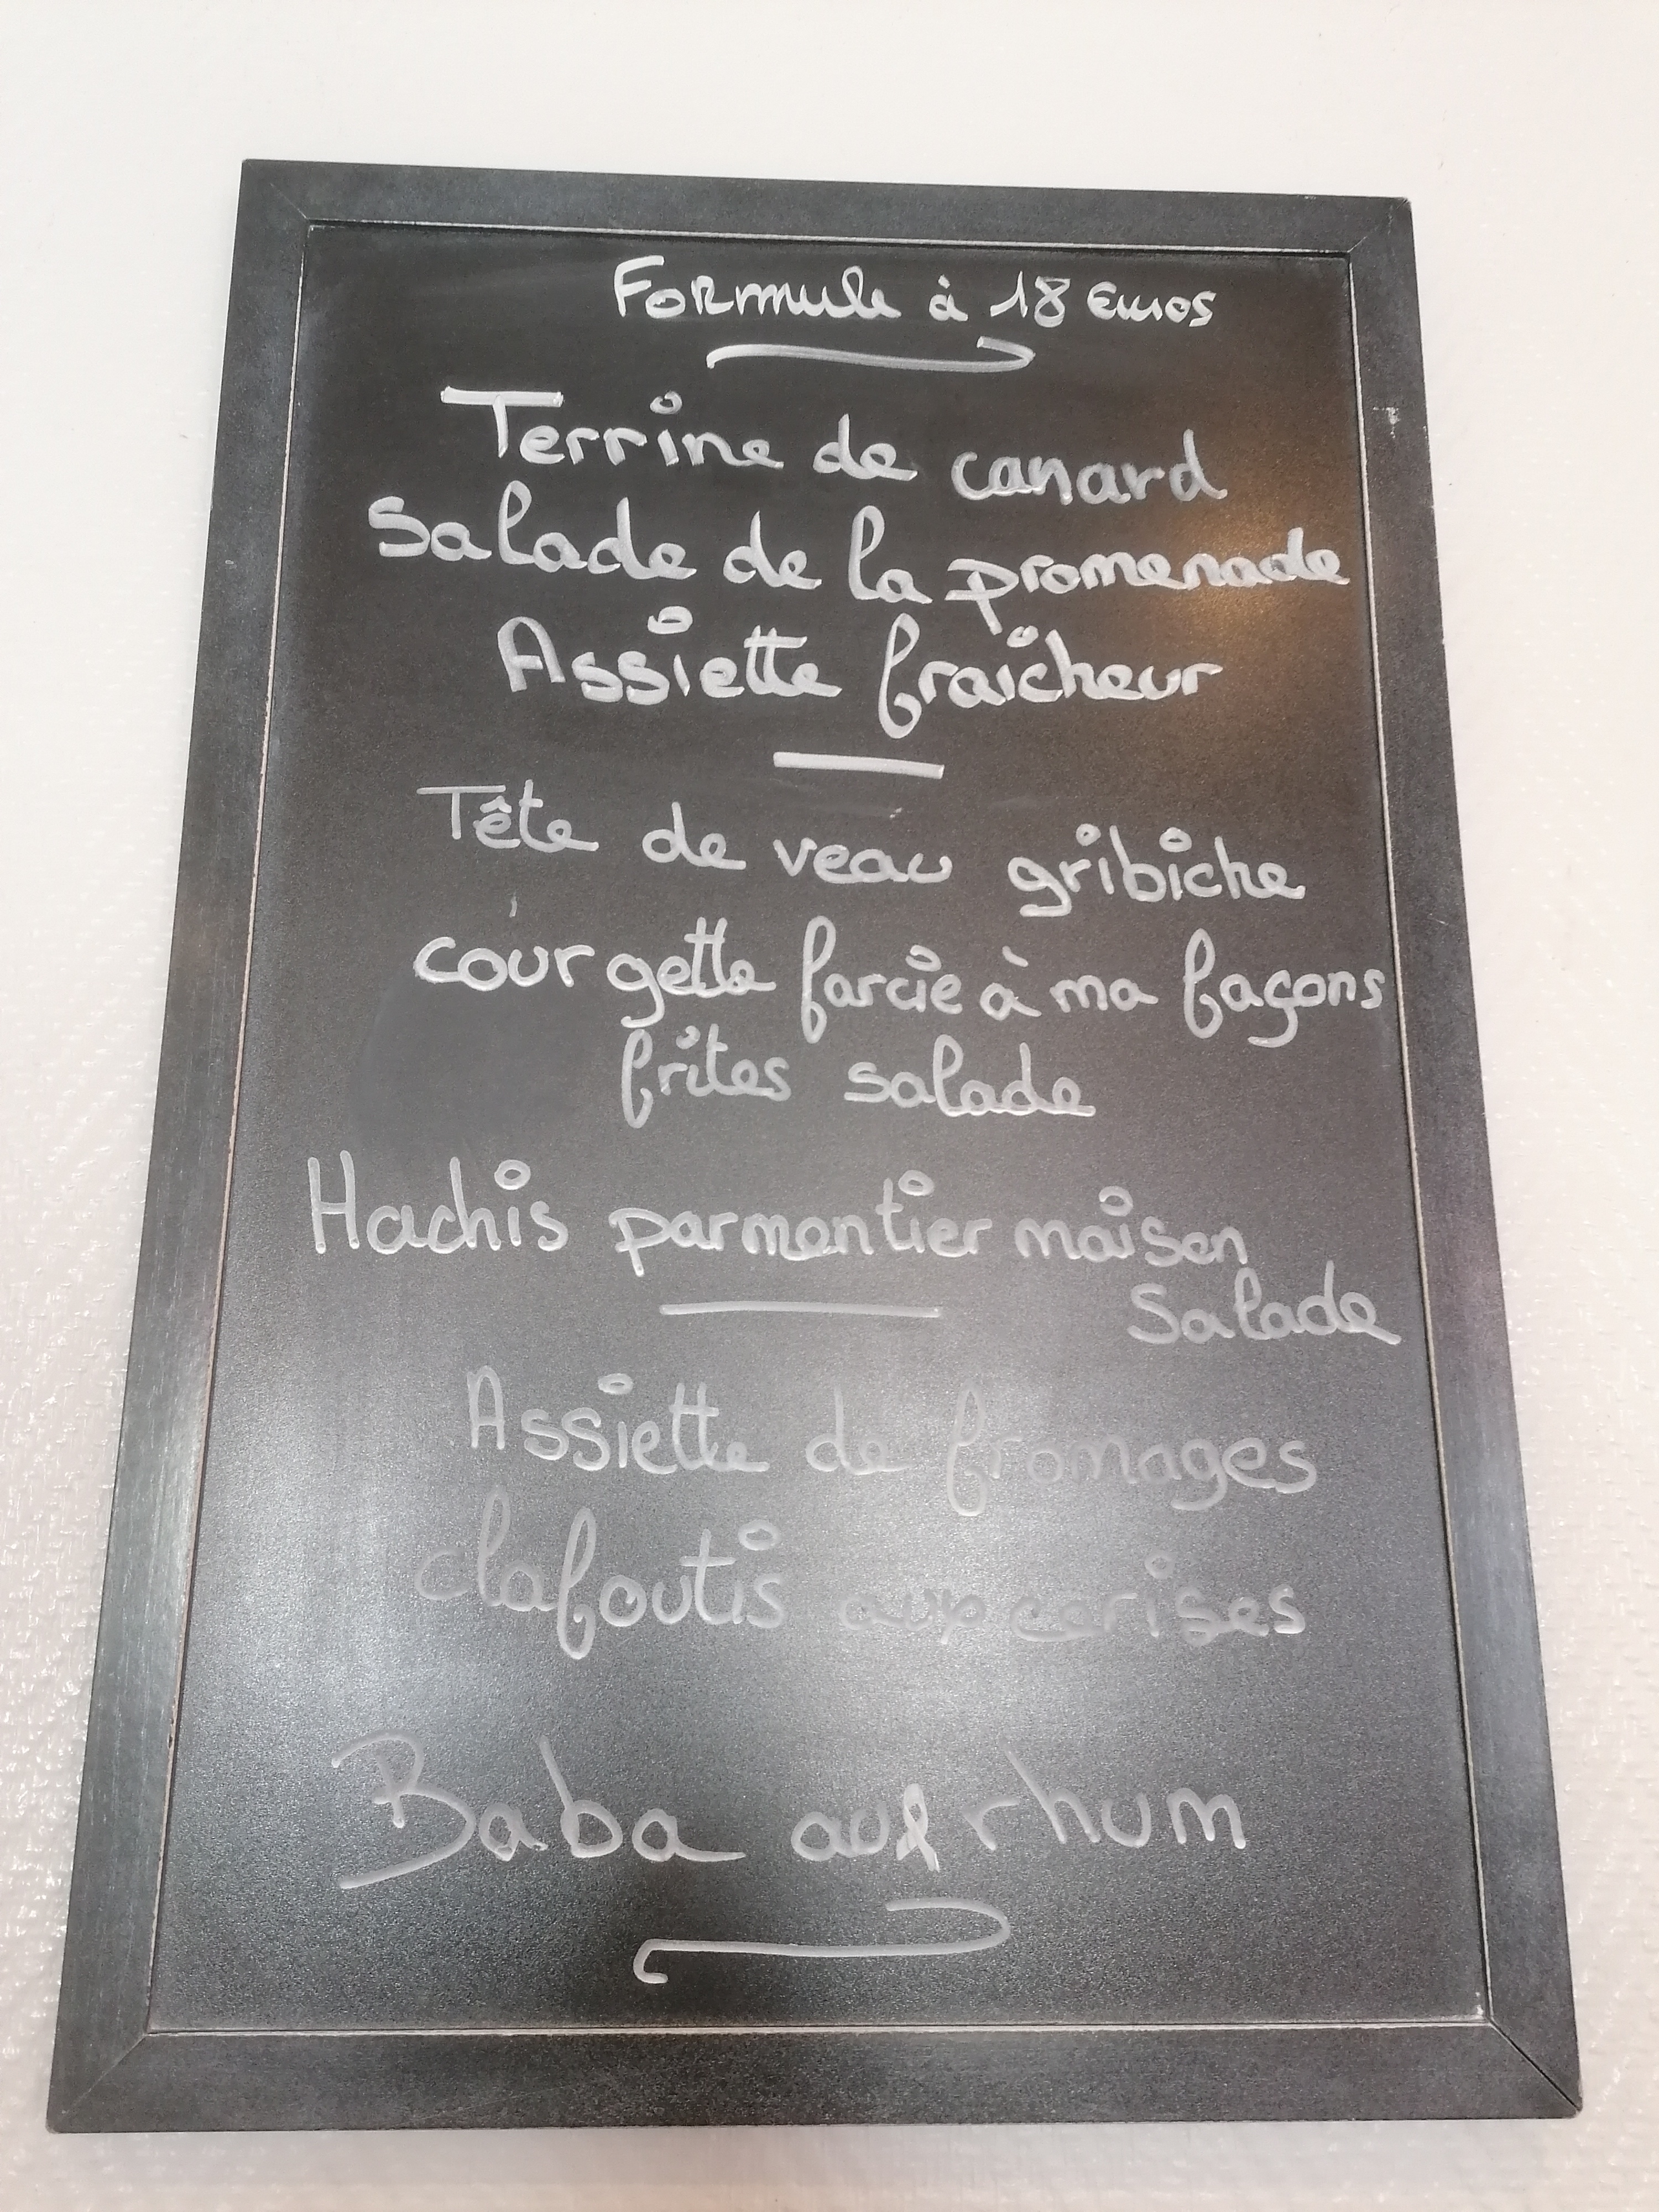 Formule à 18 Euros
Terrine de canard
Salade de la promenade
Assiette fraicheur
Tête de veau gribiche
courgette farcie à ma façons
frites salade
Hachis parmentier maison
Salade
Assiette de fromages
clafoutis aux cerises
Baba au rhum